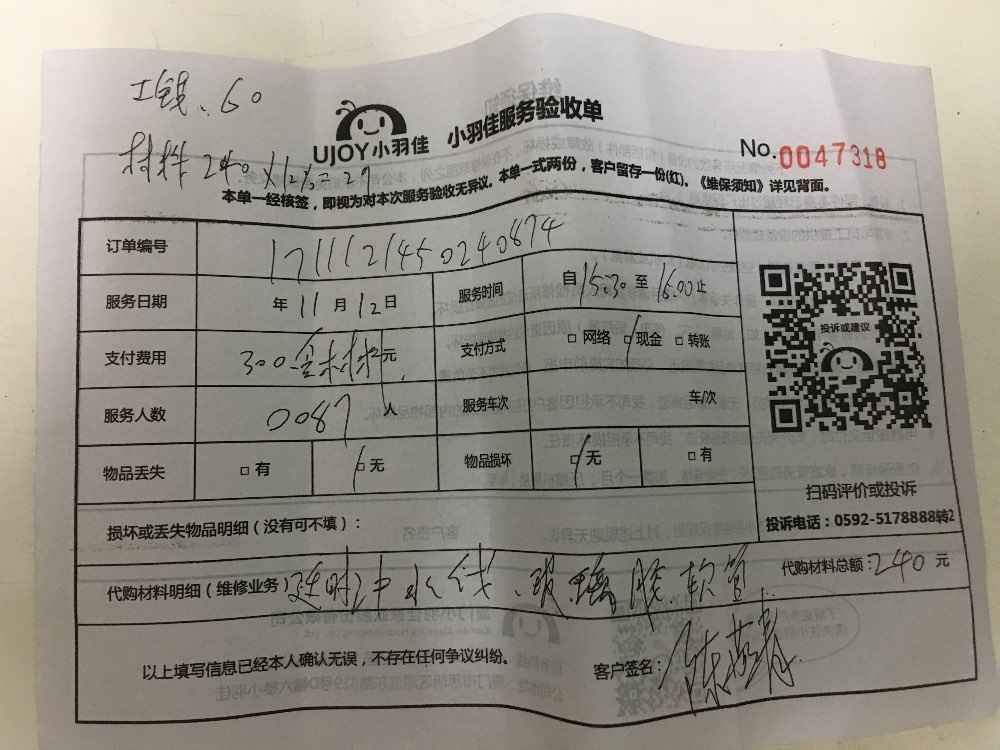 工钱、60
材料240×12%=27
UJOY小羽佳 小羽佳服务验收单
No.0047318
本单一经核签，即视为对本次服务验收无异议。本单一式两份，客户留存一份(红)。《维保须知》详见背面。
订单编号 1711121450240874
服务日期 年11月12日 服务时间 自15:30至16:00止
支付费用 300含材料元 支付方式 □网络 □现金 □转账
服务人数 0087人 服务车次 车/次
物品丢失 □有 □无 物品损坏 □无 □有
投诉或建议
扫码评价或投诉
投诉电话：0592-5178888转2
损坏或丢失物品明细（没有可不填）：
代购材料明细（维修业务） 延时冲水线、玻璃胶、软管 代购材料总额：240元
以上填写信息已经本人确认无误，不存在任何争议纠纷。 客户签名：